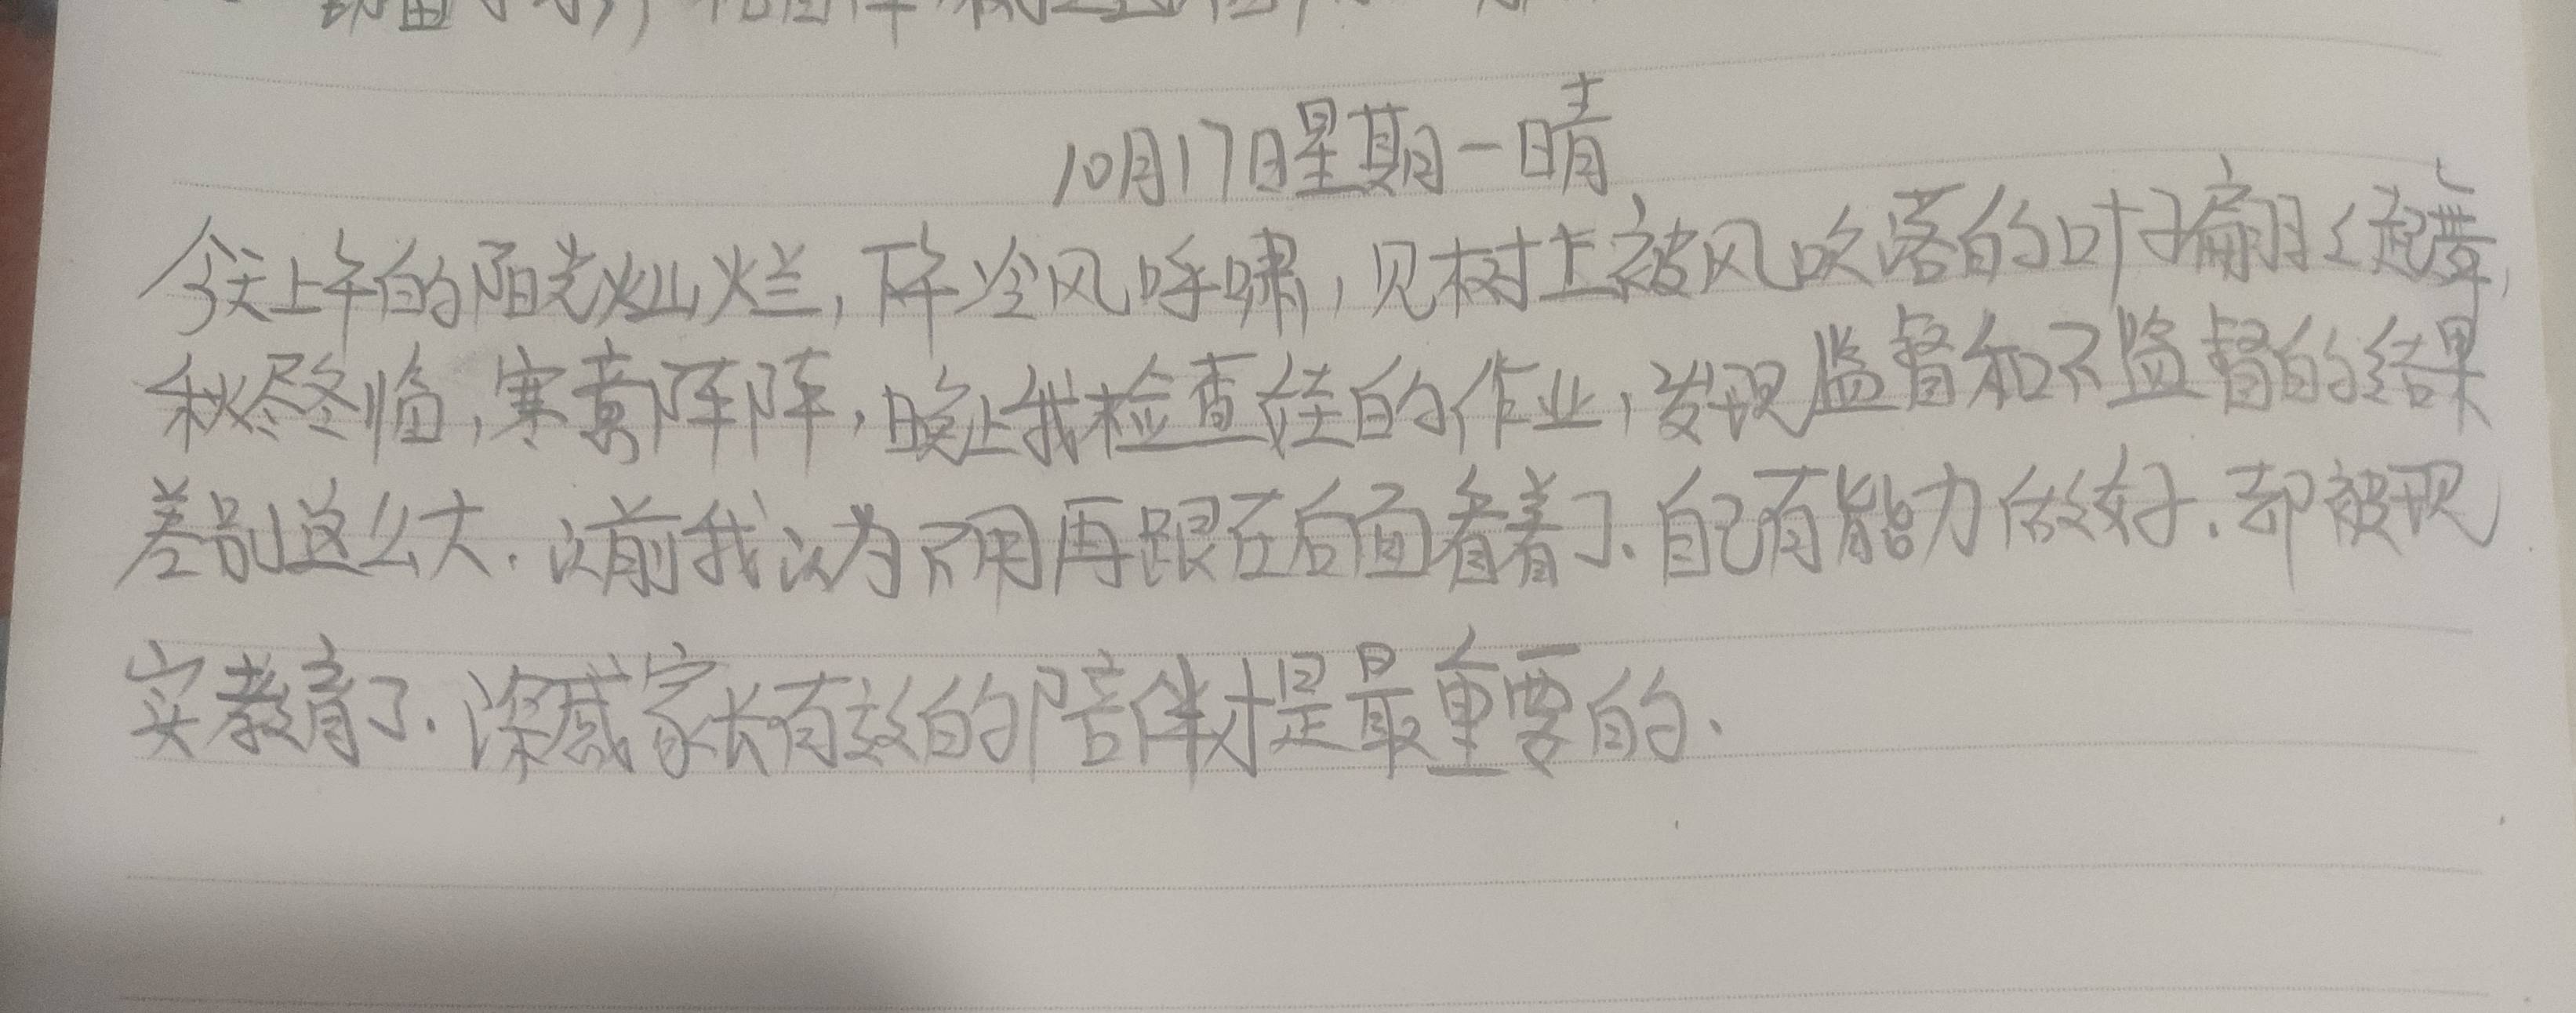 10月17日星期一晴
今天上午的阳光灿烂,下午冷风呼啸,见树上被风吹落的叶子翩翩起舞,
秋尽冬临,寒意阵阵,晚上我检查娃的作业,发现监督和不监督的结果
差别这么大.以前我以为不用再跟在后面看着了.自己有能力做好.却被现
实教育了.深感家长有效的陪伴才是最重要的.